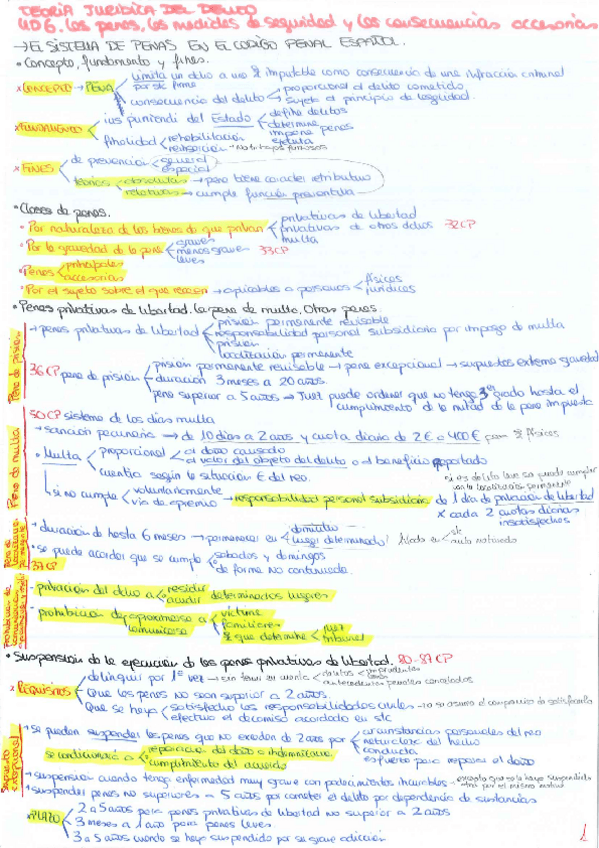 TEORIA JURIDICA DEL DELITO
UD 6. Las penas, las medidas de seguridad y las consecuencias accesorias
→ EL SISTEMA DE PENAS EN EL CODIGO PENAL ESPAÑOL.
• Concepto, fundamento y fines.
x CONCEPTO → PENA
limita un dcho a una pª imputable como consecuencia de una infracción criminal
por stc firme
consecuencia del delito
proporcional al delito cometido
sujeta al principio de legalidad.
x FUNDAMENTO
ius puniendi del Estado
define delitos
determina
impone penas
ejecuta
finalidad
rehabilitación
reinserción
No trabajos forzosos
x FINES
de prevención
general
especial
teorías
absolutas → pena tiene carácter retributivo
relativas → cumple función preventiva
• Clases de penas.
• Por naturaleza de los bienes de que privan
privativas de libertad
privativas de otros dchos 32 CP
multa
• Por la gravedad de la pena
graves
menos graves 33 CP
leves
• Penas
principales
accesorias
• Por el sujeto sobre el que recaen → aplicables a personas
físicas
jurídicas
• Penas privativas de libertad. La pena de multa. Otras penas.
Pena de prisión
→ penas privativas de libertad
prisión permanente revisable
responsabilidad personal subsidiaria por impago de multa
prisión
localización permanente
36 CP pena de prisión
prisión permanente revisable → pena excepcional → supuestos extrema gravedad
duración 3 meses a 20 años.
pena superior a 5 años → Juez puede ordenar que no tenga 3er grado hasta el
cumplimiento de la mitad de la pena impuesta
Pena de multa
50 CP sistema de los días multa
→ sanción pecuniaria → de 10 días a 2 años y cuota diaria de 2 € a 400 € para pª físicas
• Multa
proporcional
al daño causado
al valor del objeto del delito o al beneficio reportado
cuantía según la situación € del reo.
si no cumple
voluntariamente
vía de apremio
→ responsabilidad personal subsidiaria de 1 día de privación de libertad
x cada 2 cuotas diarias
insatisfechas
si es delito leve se puede cumplir
con la localización permanente
Pena de localización permanente
37 CP
→ duración de hasta 6 meses → permanecer en
domicilio
lugar determinado
fijado en
stc
auto motivado
• se puede acordar que se cumpla
sábados y domingos
de forma no continuada.
- privación del dcho a
residir
acudir determinados lugares
- prohibición de
aproximarse a
comunicarse
víctima
familiares
pª que determine
juez
tribunal
• Suspensión de la ejecución de las penas privativas de libertad. 80-87 CP
x REQUISITOS
delinquir por 1ª vez → sin tener en cuenta
delitos imprudentes
antecedentes penales cancelados
Que las penas no sean superior a 2 años.
Que se haya
satisfecho las responsabilidades civiles → o se asuma el compromiso de satisfacerla
efectuo el decomiso acordado en stc
Supuesto excepcional
• se pueden suspender las penas que no excedan de 2 años por
circunstancias personales del reo
naturaleza del hecho
conducta
esfuerzo para reparar el daño
se condicionará a
reparación del daño o indemnizar
cumplimiento del acuerdo
• suspensión cuando tenga enfermedad muy grave con padecimientos incurables
excepto que se le haya suspendido
otra por el mismo motivo
• suspender penas no superiores a 5 años por cometer el delito por dependencia de sustancias
x PLAZO
2 a 5 años para penas privativas de libertad no superior a 2 años
3 meses a 1 año para penas leves
3 a 5 años cuando se haya suspendido por su grave adicción
1